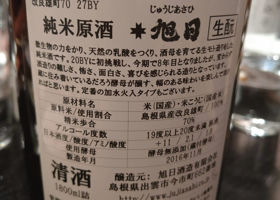 改良雄町70 27BY
じゅうじあさひ
純米原酒 旭日 生酛
微生物の力をかり、天然の乳酸をつくり、酒母を育てる生もと造りした
純米酒です。20BYに初挑戦し、今期で8年目となりましたが、変わらず
酒造りの難しさ、怖さ、面白さ、喜びを感じられる造りとなっています。
定番の加水火入タイプもございます。
原材料名 米(国産)・米こうじ(国産米)
原料米 島根県産改良雄町 100%
精米歩合 70%
アルコール度数 19度以上20度未満
日本酒度/酸度/アミノ酸度 +11 2.1 1.3
使用酵母 酵母無添加
製造年月 2016年11月
清酒
1800ml詰
醸造元: 旭日酒造有限会社
島根県出雲市今市町662
www.jujiasahi.co.jp